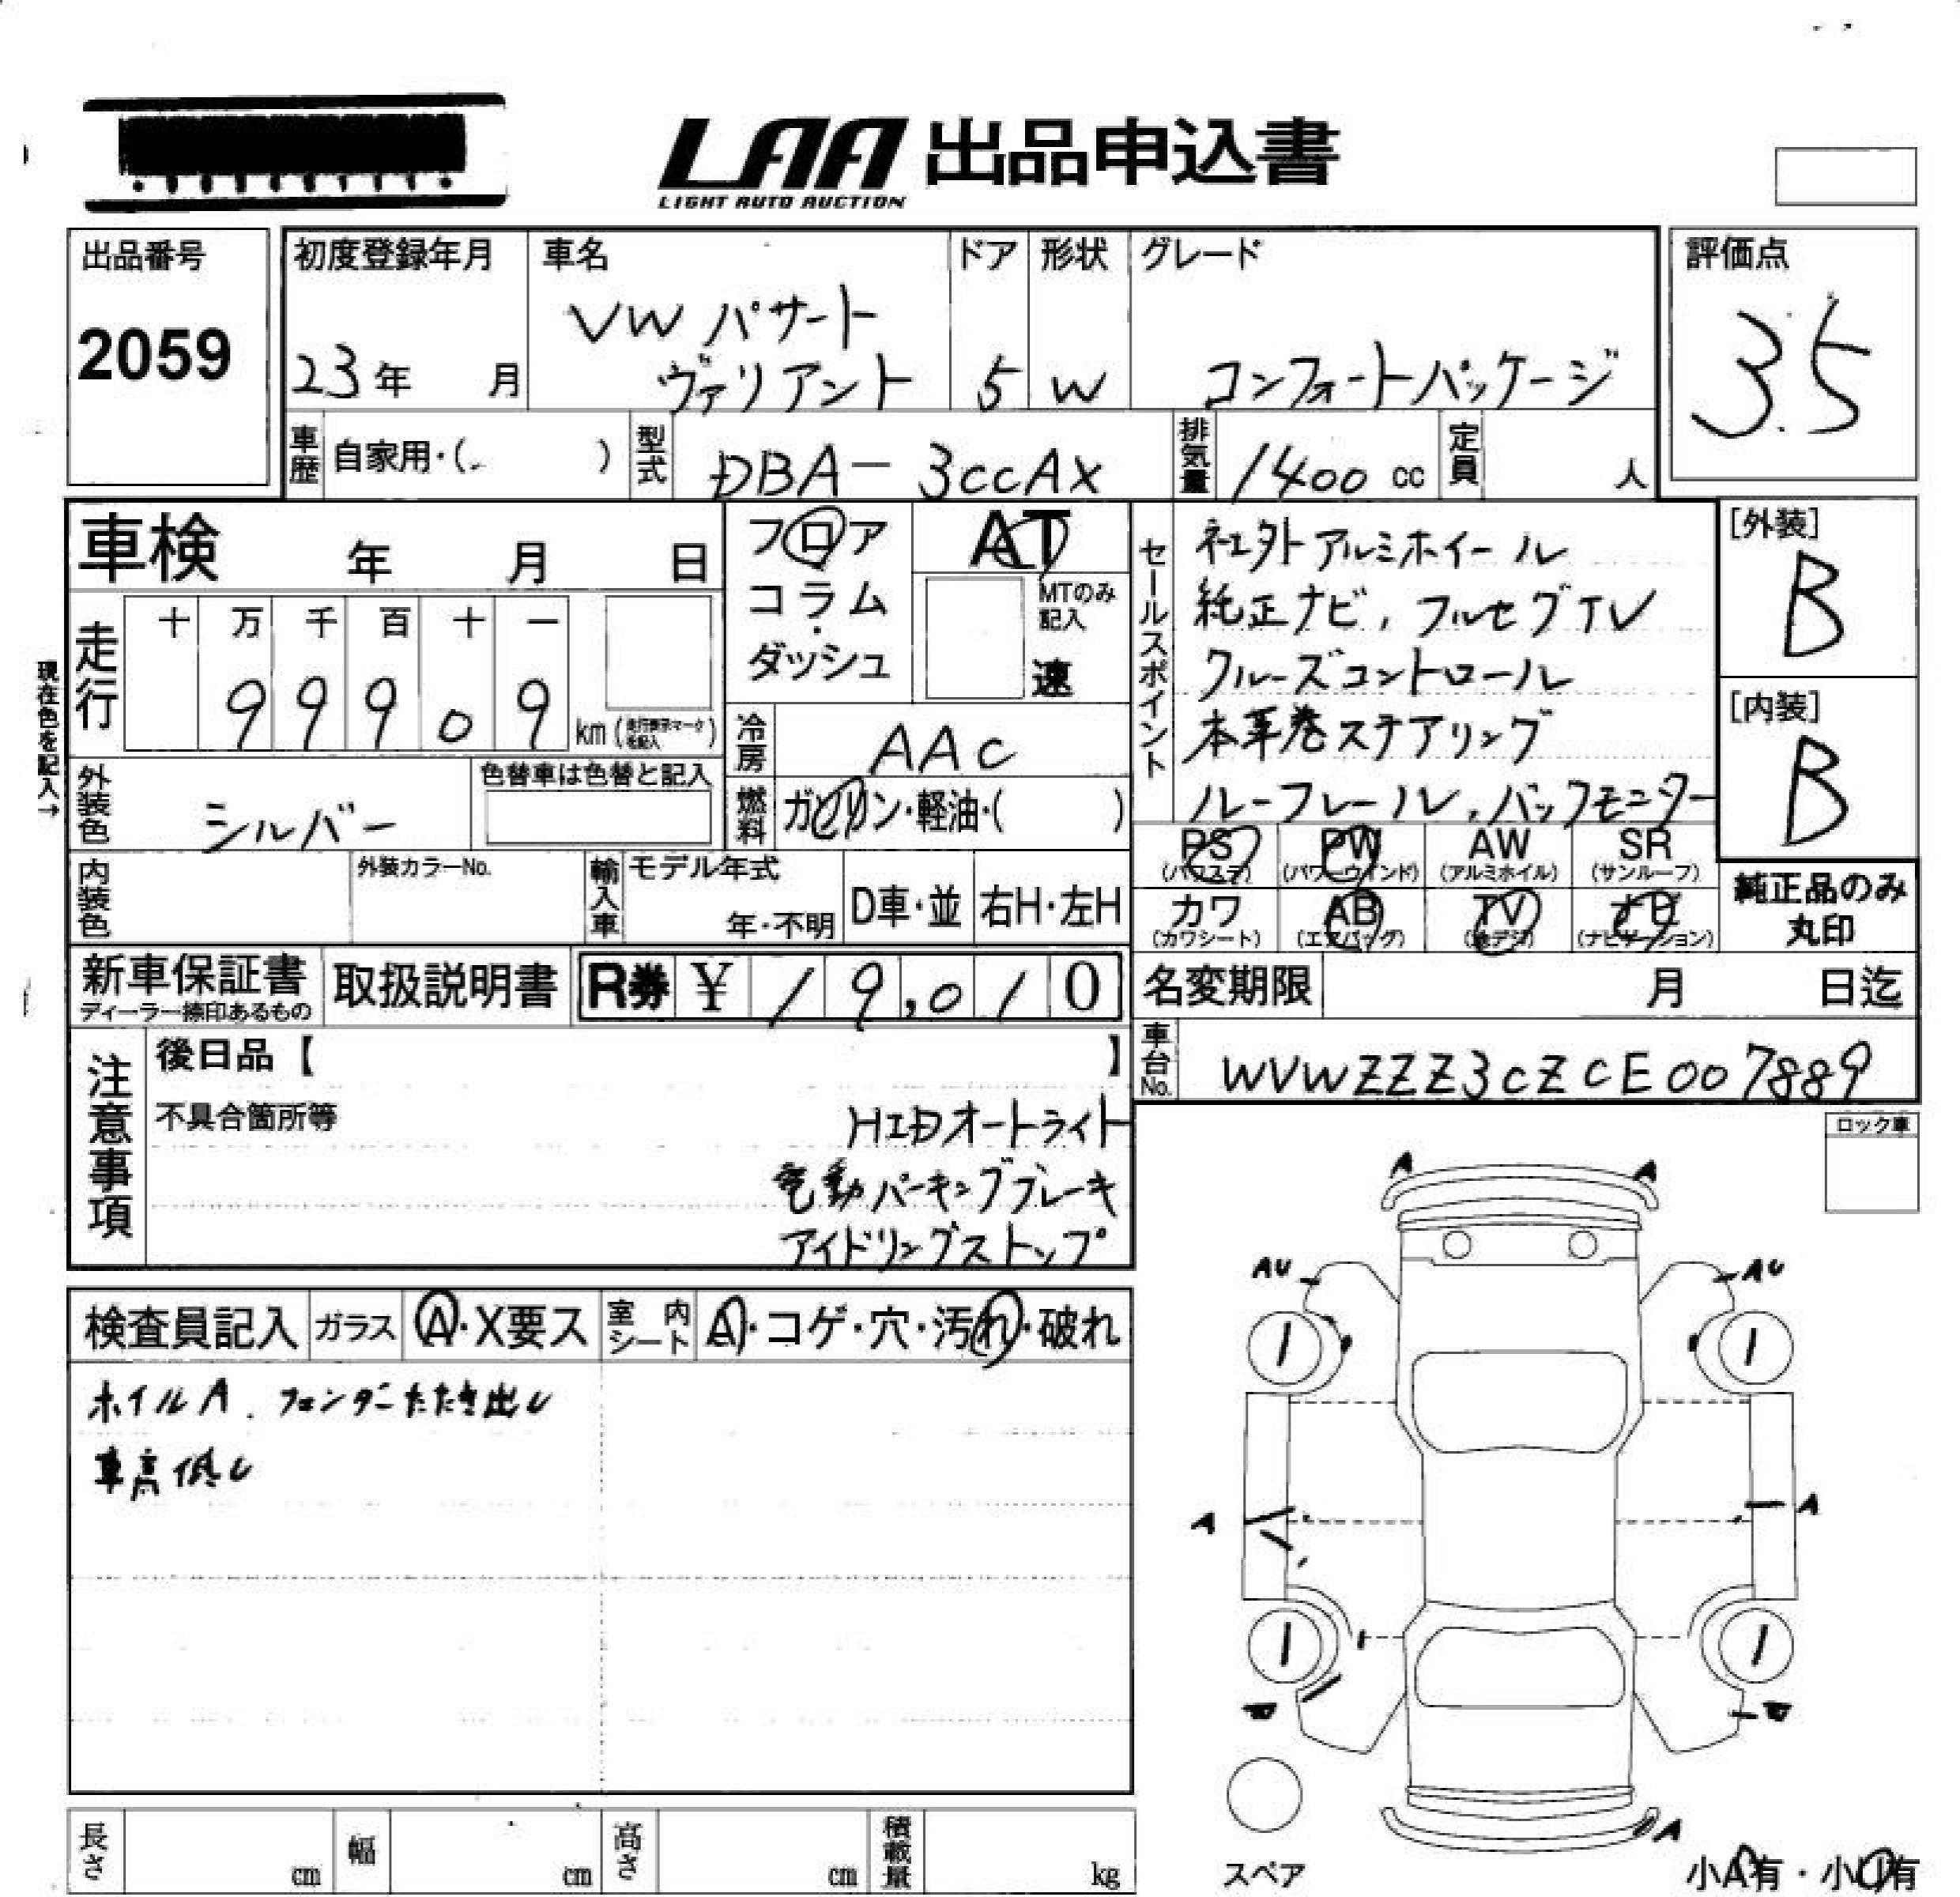 LAA 出品申込書
LIGHT AUTO AUCTION
出品番号
2059
初度登録年月
23年 月
車名
VW パサート
ヴァリアント
ドア
5
形状
W
グレード
コンフォートパッケージ
評価点
3.5
車歴 自家用・( )
型式 DBA-3CCAX
排気量 1400 cc
定員 人
車検 年 月 日
フロア
コラム
・
ダッシュ
AT
MTのみ
記入
速
セールスポイント
社外アルミホイール
純正ナビ, フルセグTV
クルーズコントロール
本革巻ステアリング
ルーフレール,バックモニター
[外装]
B
[内装]
B
現在色を記入→
走行
十 万 千 百 十 一
9 9 9 0 9 km (走行表示マークを記入)
冷房 AAC
燃料 ガソリン・軽油・( )
外装色 シルバー
色替車は色替と記入
内装色
外装カラーNo.
輸入車
モデル年式
年・不明
D車・並
右H・左H
PS (パワステ)
PW (パワーウインド)
AW (アルミホイル)
SR (サンルーフ)
カワ (カワシート)
AB (エアバッグ)
TV (地デジ)
ナビ (ナビゲーション)
純正品のみ
丸印
新車保証書
ディーラー捺印あるもの
取扱説明書
R券 ¥ 19,010
名変期限 月 日迄
車台No. WVWZZZ3CZCE007889
注意事項
後日品【 】
不具合箇所等
HIDオートライト
電動パーキングブレーキ
アイドリングストップ
ロック車
検査員記入
ガラス A・X要ス
室内シート A・コゲ・穴・汚れ・破れ
ホイルA. フェンダーたたき出し
車高低し
A A
AU AU
1 1
A A
1 1
A
スペア
小A有・小U有
長さ cm
幅 cm
高さ cm
積載量 kg